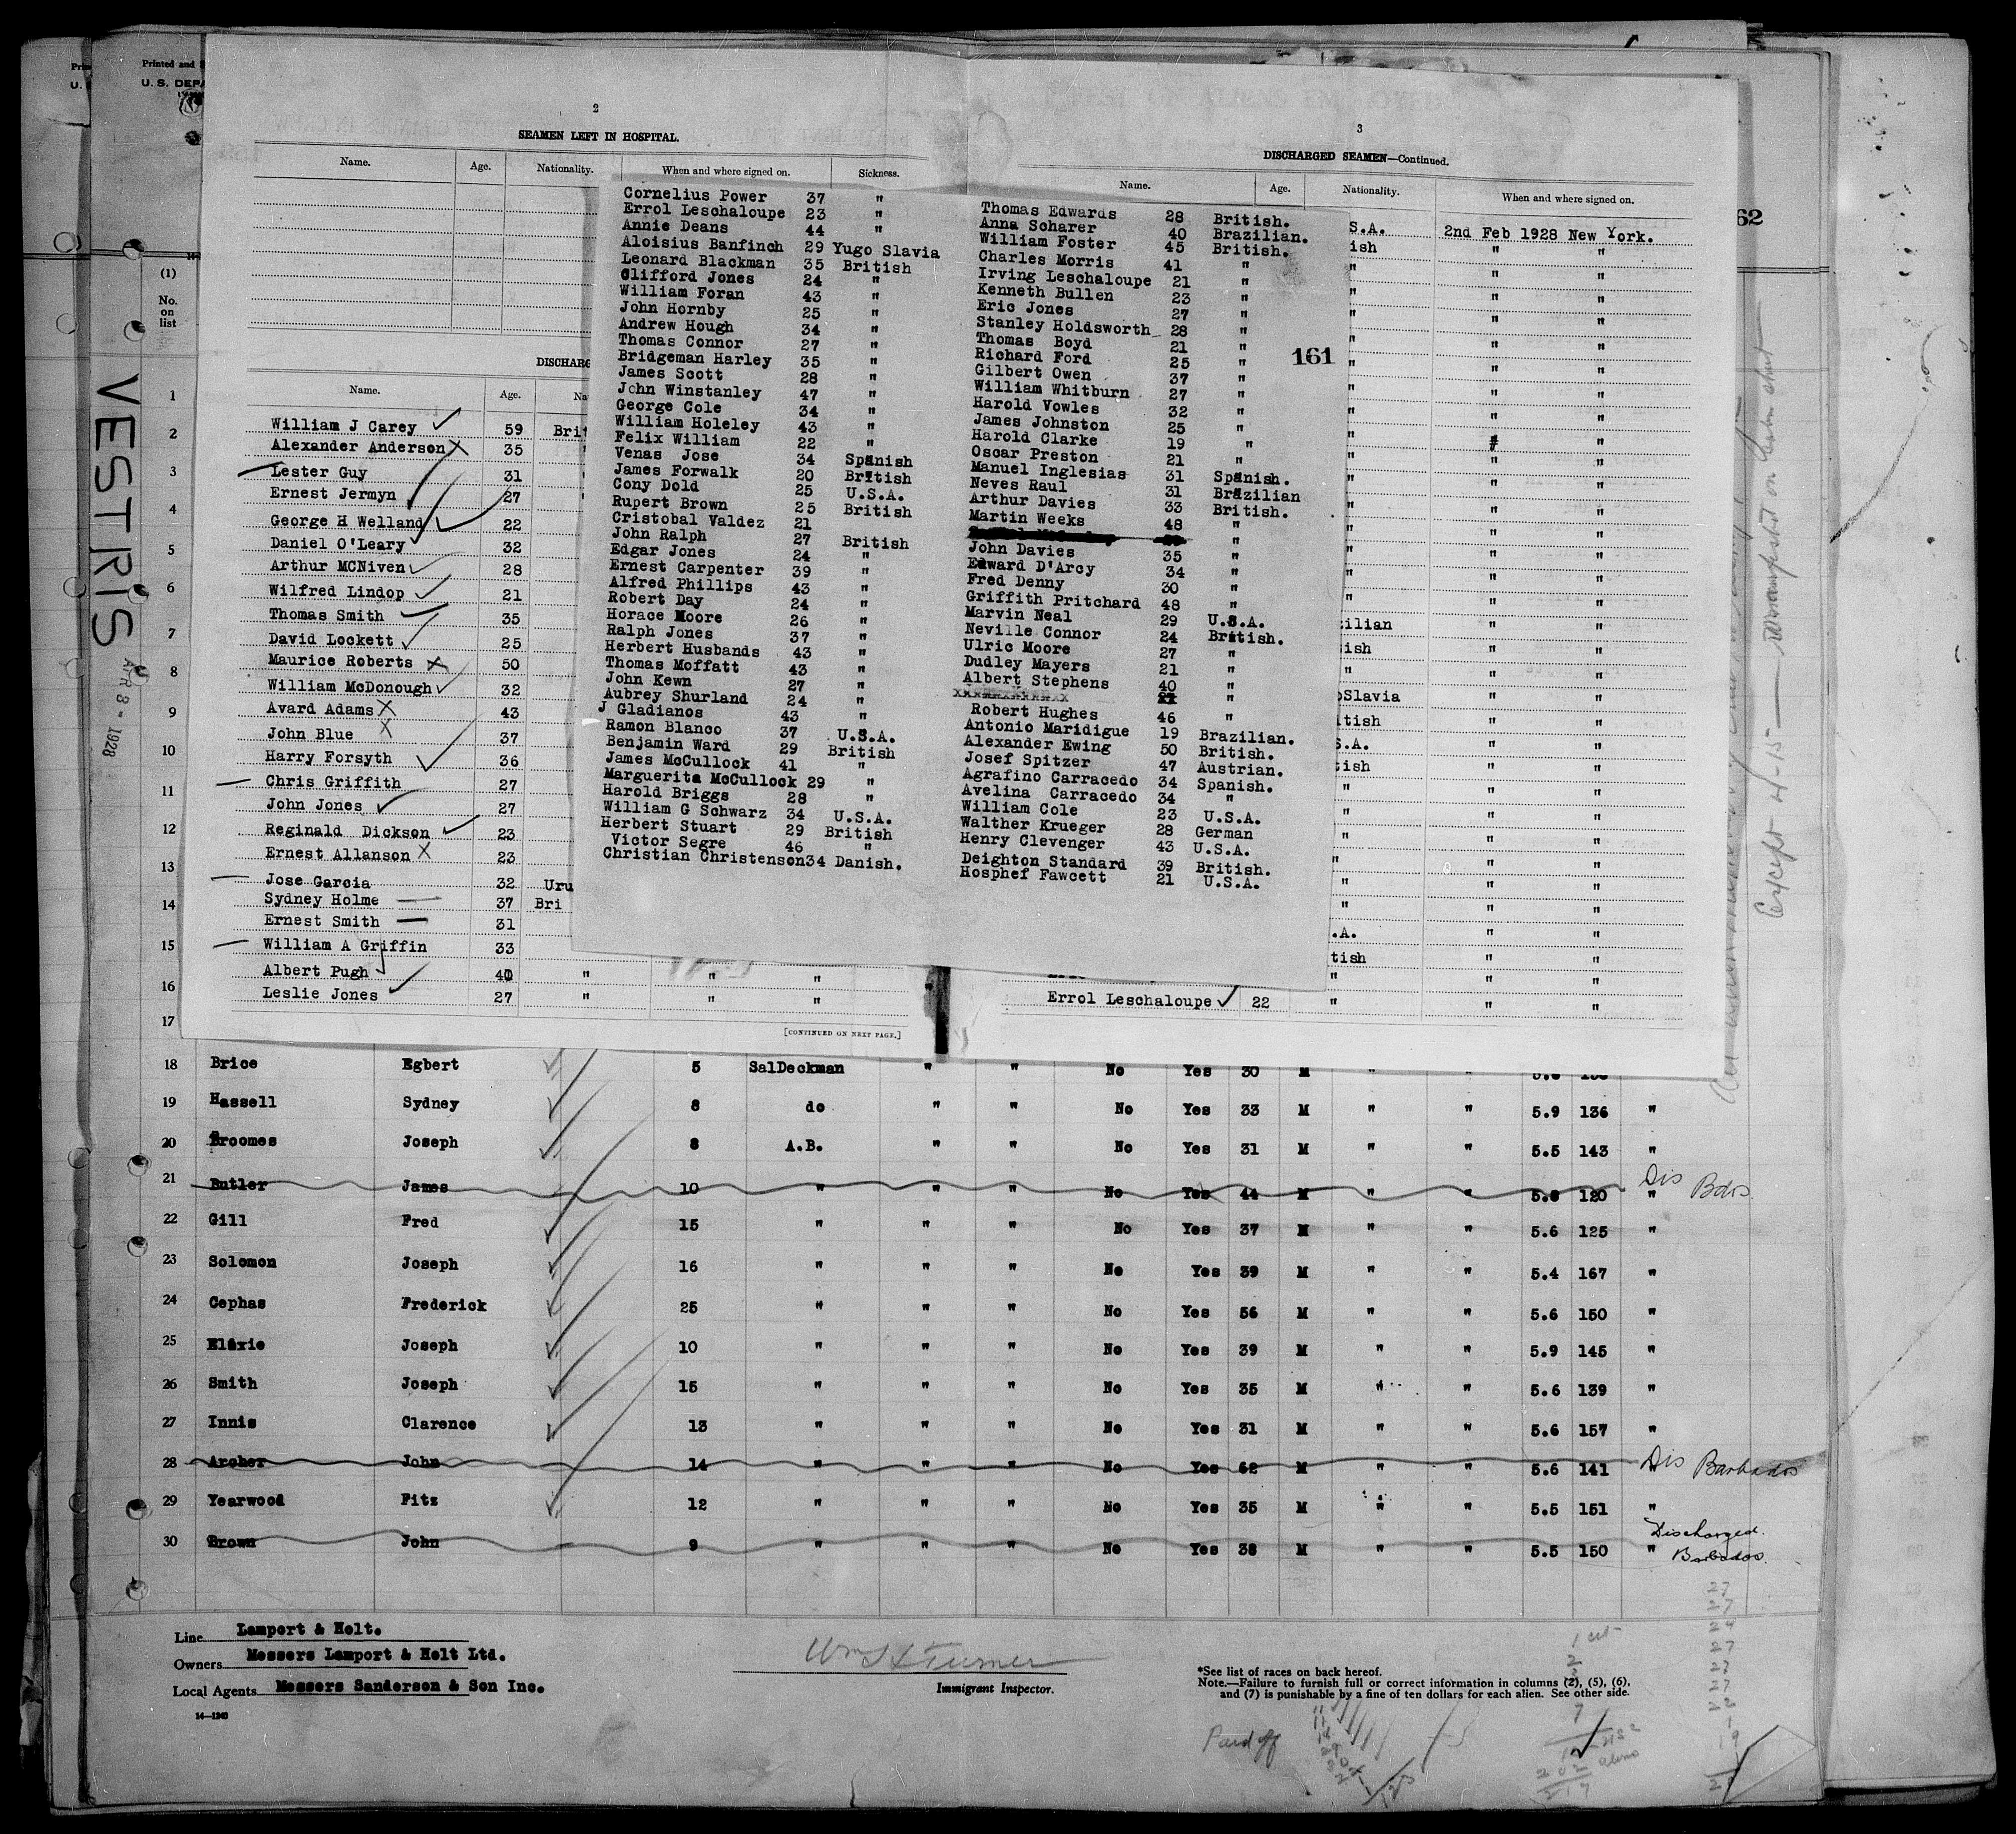 Printed and
U. S. DEPA
2
SEAMEN LEFT IN HOSPITAL.
Name. Age. Nationality. When and where signed on. Sickness.
3
DISCHARGED SEAMEN—Continued.
Name. Age. Nationality. When and where signed on.
62
Cornelius Power 37 "
Errol Leschaloupe 23 "
Annie Deans 44 "
Aloisius Banfinch 29 Yugo Slavia
Leonard Blackman 35 British
Clifford Jones 24 "
William Foran 43 "
John Hornby 25 "
Andrew Hough 34 "
Thomas Connor 27 "
Bridgeman Harley 35 "
James Scott 28 "
John Winstanley 47 "
George Cole 34 "
William Holeley 43 "
Felix William 22 "
Venas Jose 34 Spanish
James Forwalk 20 British
Cony Dold 25 U.S.A.
Rupert Brown 25 British
Cristobal Valdez 21
John Ralph 27 British
Edgar Jones 24 "
Ernest Carpenter 39 "
Alfred Phillips 43 "
Robert Day 24 "
Horace Moore 26 "
Ralph Jones 37 "
Herbert Husbands 43 "
Thomas Moffatt 43 "
John Kewn 27 "
Aubrey Shurland 24 "
J Gladianos 43 "
Ramon Blanco 37 U.S.A.
Benjamin Ward 29 British
James McCullock 41 "
Marguerita McCullock 29 "
Harold Briggs 28 "
William G Schwarz 34 U.S.A.
Herbert Stuart 29 British
Victor Segre 46 "
Christian Christenson 34 Danish.
Thomas Edwards 28 British.
Anna Scharer 40 Brazilian.
William Foster 45 British.
Charles Morris 41 "
Irving Leschaloupe 21 "
Kenneth Bullen 23 "
Eric Jones 27 "
Stanley Holdsworth 28 "
Thomas Boyd 21 "
Richard Ford 25 "
Gilbert Owen 37 "
William Whitburn 27 "
Harold Vowles 32 "
James Johnston 25 "
Harold Clarke 19 "
Oscar Preston 21 "
Manuel Inglesias 31 Spanish.
Neves Raul 31 Brazilian
Arthur Davies 33 British.
Martin Weeks 48 "
John Davies 35 "
Edward D'Arcy 34 "
Fred Denny 30 "
Griffith Pritchard 48 "
Marvin Neal 29 U.S.A.
Neville Connor 24 British.
Ulric Moore 27 "
Dudley Mayers 21 "
Albert Stephens 40 "
Robert Hughes 46 "
Antonio Maridigue 19 Brazilian.
Alexander Ewing 50 British.
Josef Spitzer 47 Austrian.
Agrafino Carracedo 34 Spanish.
Avelina Carracedo 34 "
William Cole 23 U.S.A.
Walther Krueger 28 German
Henry Clevenger 43 U.S.A.
Deighton Standard 39 British.
Hosphef Fawcett 21 U.S.A.
161
S.A. 2nd Feb 1928 New York.
ish " "
ilian " "
ish " "
oSlavia " "
itish " "
S.A. " "
tish " "
.A. " "
tish " "
Errol Leschaloupe 22 " " "
DISCHARG
Name. Age. Na
William J Carey 59 Brit
Alexander Anderson 35 "
Lester Guy 31
Ernest Jermyn 27
George H Welland 22
Daniel O'Leary 32
Arthur MCNiven 28
Wilfred Lindop 21
Thomas Smith 35
David Lockett 25
Maurice Roberts 50
William McDonough 32
Avard Adams 43
John Blue 37
Harry Forsyth 36
Chris Griffith 27
John Jones 27
Reginald Dickson 23
Ernest Allanson 23
Jose Garcia 32 Uru
Sydney Holme 37 Bri
Ernest Smith 31
William A Griffin 33
Albert Pugh 40 " " "
Leslie Jones 27 " " "
[CONTINUED ON NEXT PAGE.]
(1)
No.
on
list
1
2
3
4
5
6
7
8
9
10
11
12
13
14
15
16
17
VESTRIS
APR 8 - 1928
except 4-15
18 Brice Egbert 5 SalDeckman " " No Yes 30 M " "
19 Hassell Sydney 8 do " " No Yes 33 M " " 5.9 136 "
20 Broomes Joseph 8 A.B. " " No Yes 31 M " " 5.5 143 "
21 Butler James 10 " " " No Yes 44 M " " 5.8 120 " Dis Bdos
22 Gill Fred 15 " " " No Yes 37 M " " 5.6 125 "
23 Solomon Joseph 16 " " " No Yes 39 M " " 5.4 167 "
24 Cephas Frederick 25 " " " No Yes 56 M " " 5.6 150 "
25 Elaxie Joseph 10 " " " No Yes 39 M " " 5.9 145 "
26 Smith Joseph 15 " " " No Yes 35 M " " 5.6 139 "
27 Innis Clarence 13 " " " No Yes 31 M " " 5.6 157 "
28 Archer John 14 " " " No Yes 62 M " " 5.6 141 " Dis Barbados
29 Yearwood Fitz 12 " " " No Yes 35 M " " 5.5 151 "
30 Brown John 9 " " " No Yes 38 M " " 5.5 150 " Discharged. Barbados.
Line Lamport & Holt.
Owners Messers Lamport & Holt Ltd.
Local Agents Messers Sanderson & Son Inc.
14—1240
Immigrant Inspector.
*See list of races on back hereof.
Note.—Failure to furnish full or correct information in columns (2), (5), (6),
and (7) is punishable by a fine of ten dollars for each alien. See other side.
Paid off